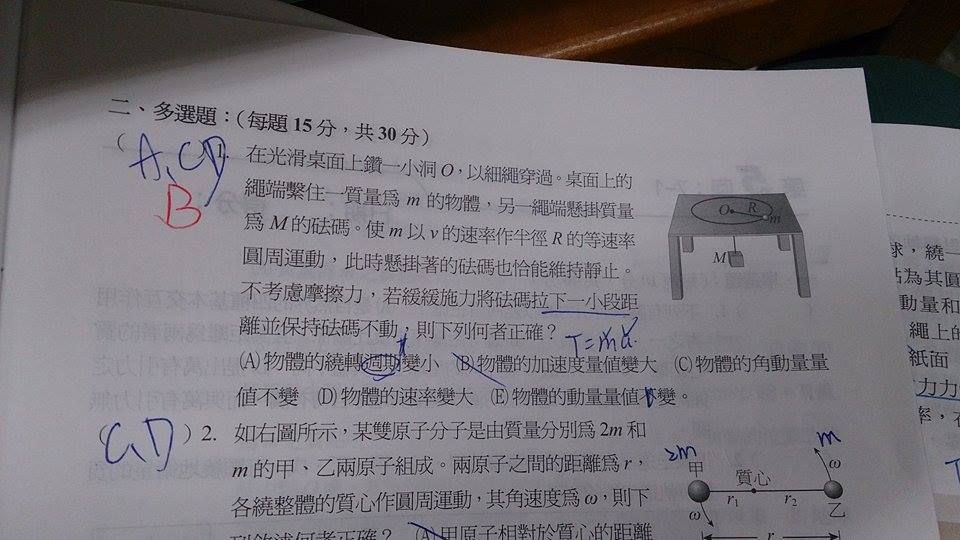 二、多選題：(每題 15 分，共 30 分)
( A、CD
B
1. 在光滑桌面上鑽一小洞 O，以細繩穿過。桌面上的
繩端繫住一質量為 m 的物體，另一繩端懸掛質量
為 M 的砝碼。使 m 以 v 的速率作半徑 R 的等速率
圓周運動，此時懸掛著的砝碼也恰能維持靜止。
不考慮摩擦力，若緩緩施力將砝碼拉下一小段距
離並保持砝碼不動，則下列何者正確？
T=ma
(A)物體的繞轉週期變小 (B)物體的加速度量值變大 (C)物體的角動量量
值不變 (D)物體的速率變大 (E)物體的動量量值不變。
O R m
M
(C,D) 2. 如右圖所示，某雙原子分子是由質量分別為 2m 和
m 的甲、乙兩原子組成。兩原子之間的距離為 r，
各繞整體的質心作圓周運動，其角速度為 ω，則下
列敘述何者正確？ (A)甲原子相對於質心的距離
2m m
甲 質心 ω
r₁ r₂
ω 乙
r
球，繞一
點為其圓
動量和
繩上的
紙面
力力
率，在